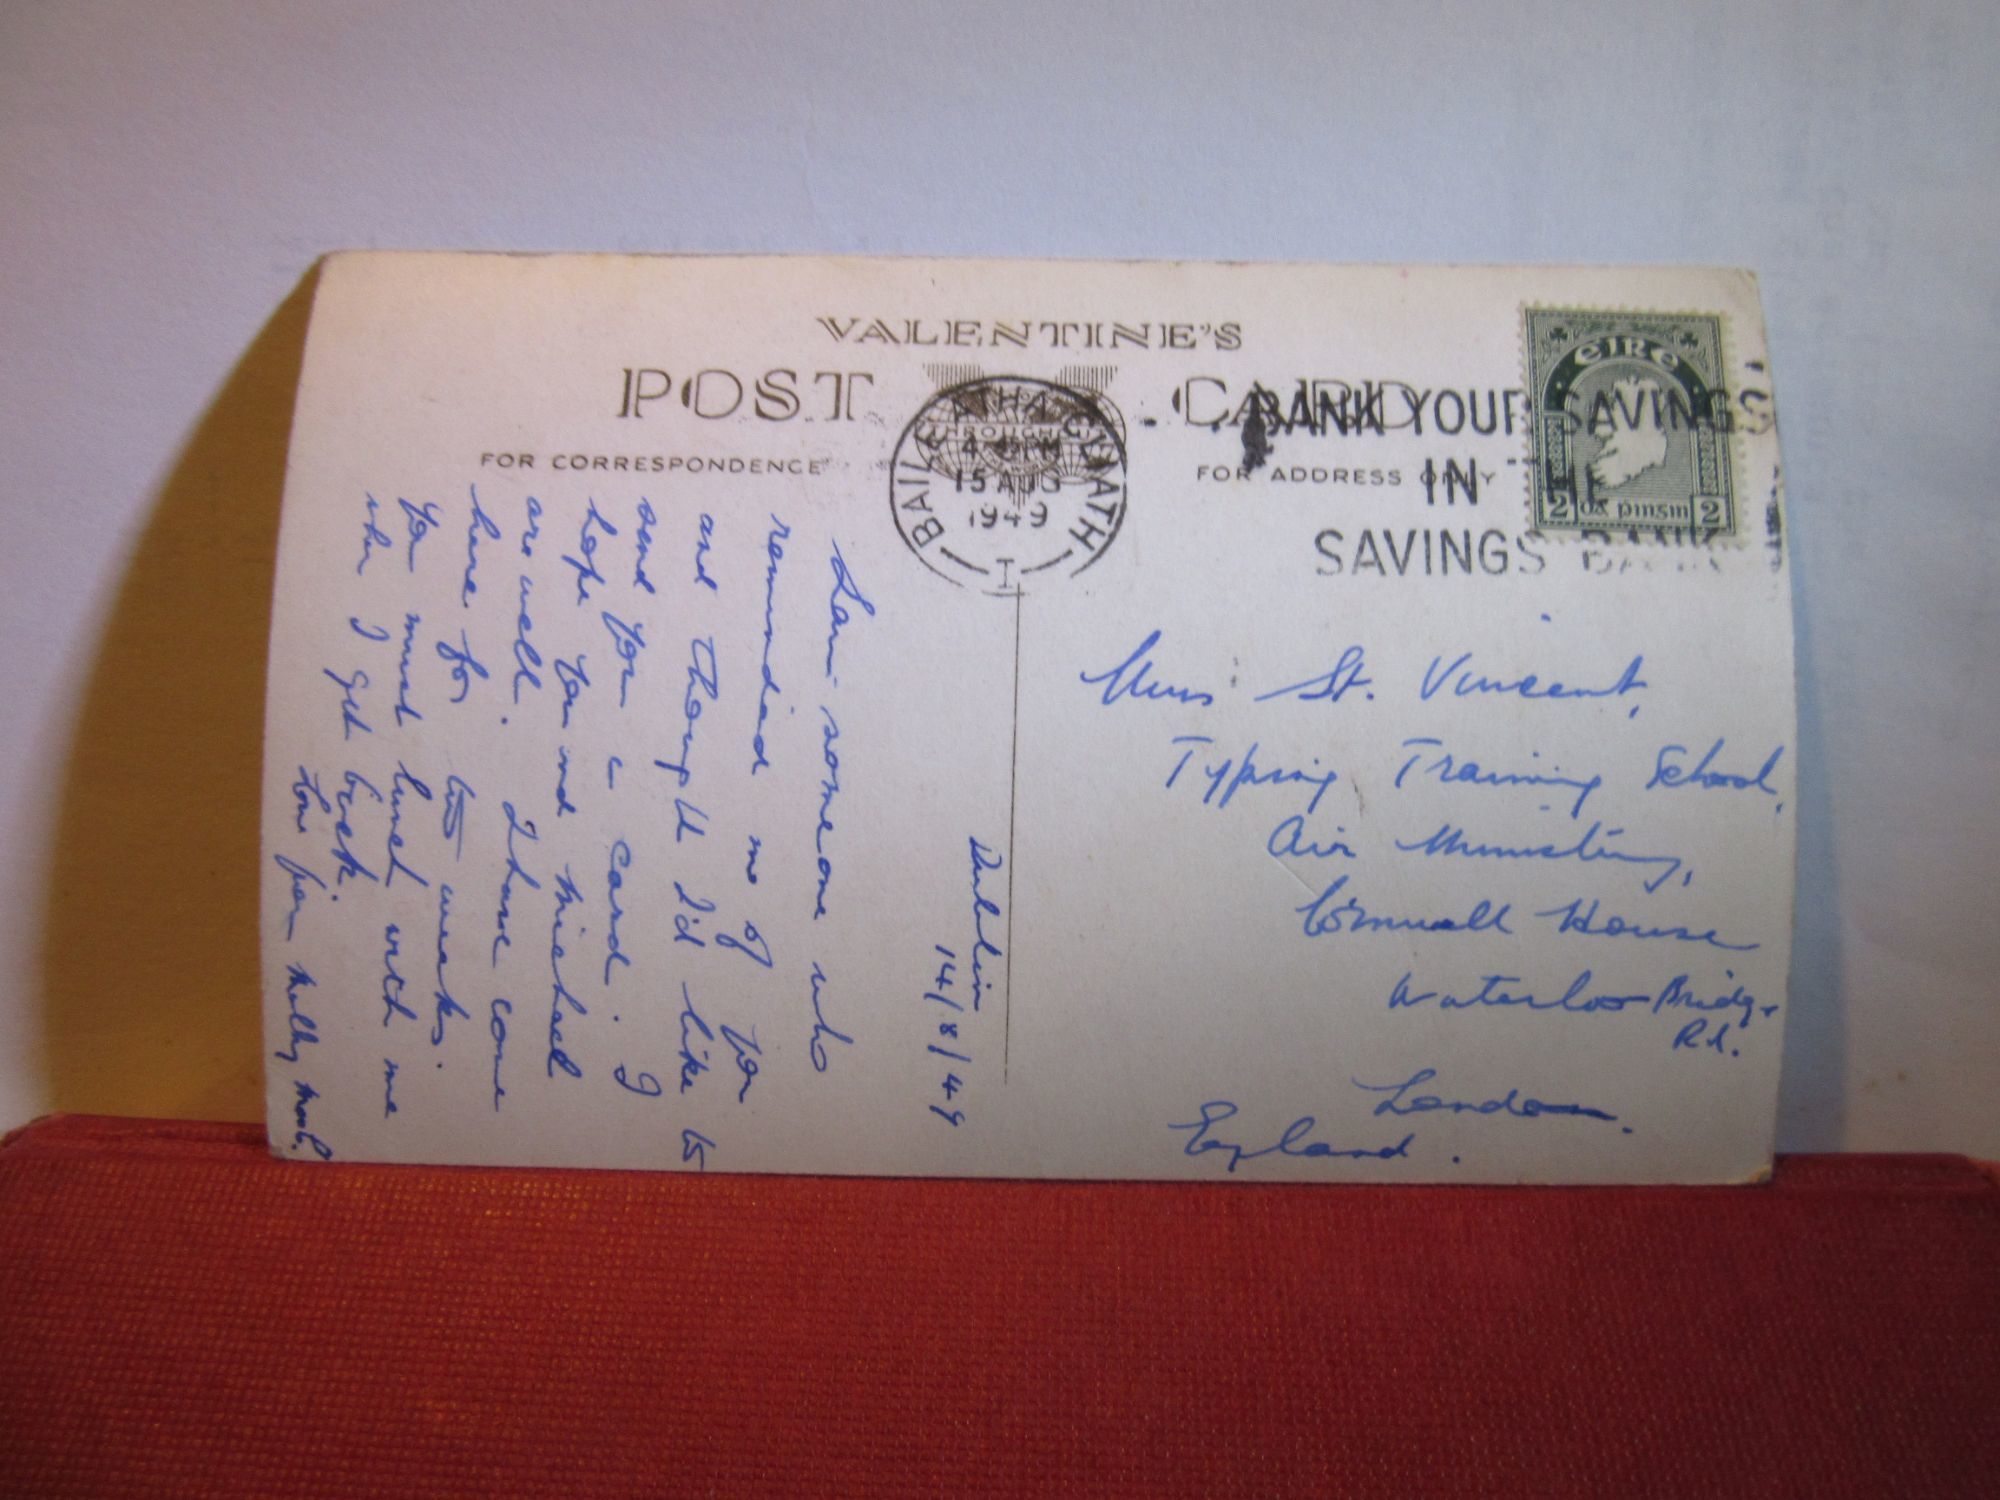 VALENTINE'S
POST CARD
FOR CORRESPONDENCE
FOR ADDRESS ONLY
BAILE ATHA CLIATH
15 AUG
1949
BANK YOUR SAVINGS
IN THE
SAVINGS BANK
EIRE
2 Da pinsin 2
Dublin
14/8/49
someone who
reminded me of you
and thought I'd like to
send you a card. I
hope you and Michael
are well. I have come
here for two weeks.
You must lunch with me
when I get back.
Love from Molly
Miss St. Vincent,
Typing Training School,
Air Ministry,
Cornwall House
Waterloo Bridge
Rd.
London.
England.